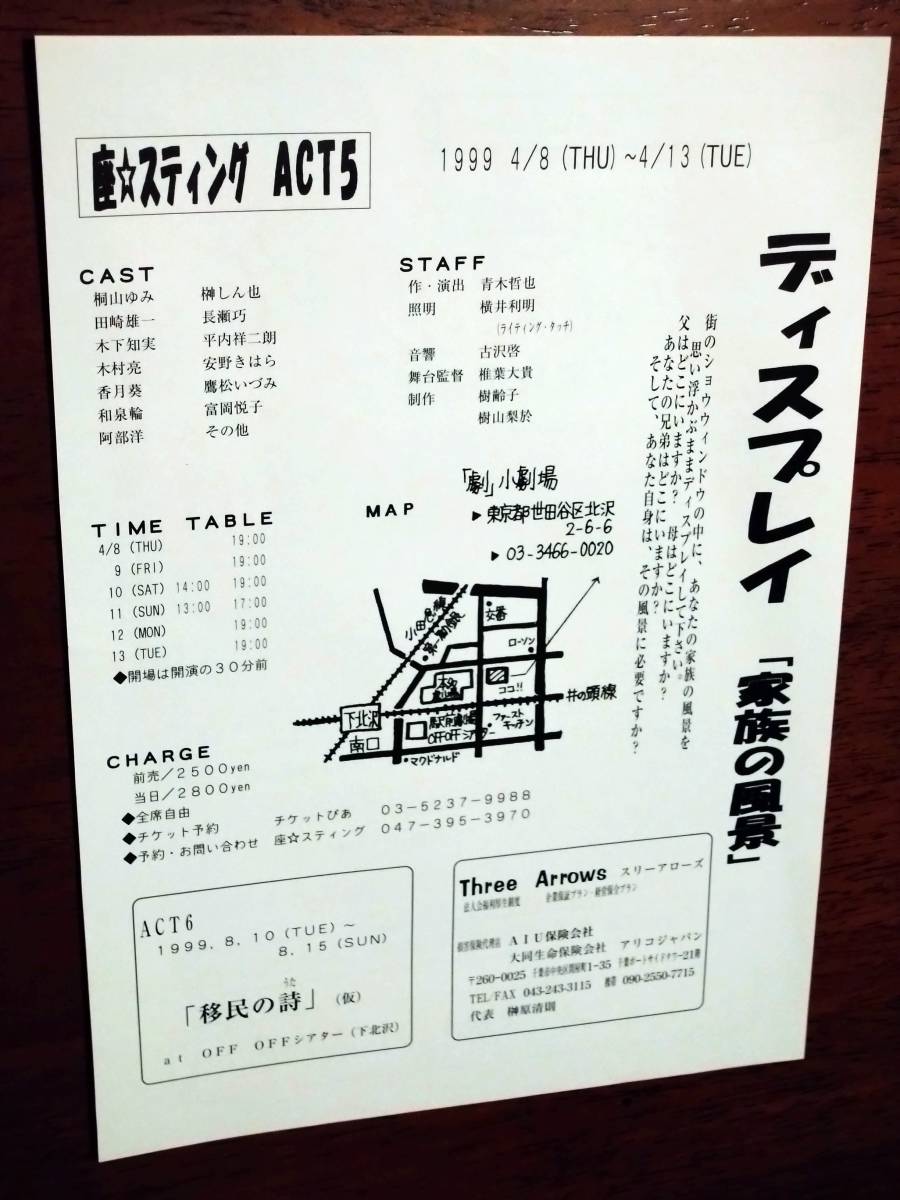 座☆スティング ACT5
1999 4/8 (THU) ~4/13 (TUE)
ディスプレイ 「家族の風景」
街のショウウィンドウの中に、あなたの家族の風景を
思い浮かぶままディスプレイして下さい。
父はどこにいますか？ 母はどこにいますか？
あなたの兄弟はどこにいますか？
そして、あなた自身は、その風景に必要ですか？
CAST
桐山ゆみ 榊しん也
田崎雄一 長瀬巧
木下知実 平内祥二朗
木村亮 安野きはら
香月葵 鷹松いづみ
和泉輪 富岡悦子
阿部洋 その他
STAFF
作・演出 青木哲也
照明 横井利明
(ライティング・タッチ)
音響 古沢啓
舞台監督 椎葉大貴
制作 樹齢子
樹山梨於
TIME TABLE
4/8 (THU) 19:00
9 (FRI) 19:00
10 (SAT) 14:00 19:00
11 (SUN) 13:00 17:00
12 (MON) 19:00
13 (TUE) 19:00
◆開場は開演の30分前
MAP
「劇」小劇場
▶東京都世田谷区北沢
2-6-6
▶03-3466-0020
小田急線
第一勧銀
安番
ローソン
本多劇場
ココ!!
井の頭線
下北沢
南口
駅前劇場
OFFOFFシアター
ファーストキッチン
マクドナルド
CHARGE
前売/2500yen
当日/2800yen
◆全席自由
◆チケット予約 チケットぴあ 03-5237-9988
◆予約・お問い合わせ 座☆スティング 047-395-3970
ACT6
1999. 8. 10 (TUE) ~
8. 15 (SUN)
うた
「移民の詩」(仮)
at OFF OFFシアター (下北沢)
Three Arrows スリーアローズ
法人会福利厚生制度 企業保証プラン・経営保全プラン
損害保険代理店 AIU保険会社
大同生命保険会社 アリコジャパン
〒260-0025 千葉市中央区問屋町1-35 千葉ポートサイドタワー21階
TEL/FAX 043-243-3115 携帯 090-2550-7715
代表 榊原清則